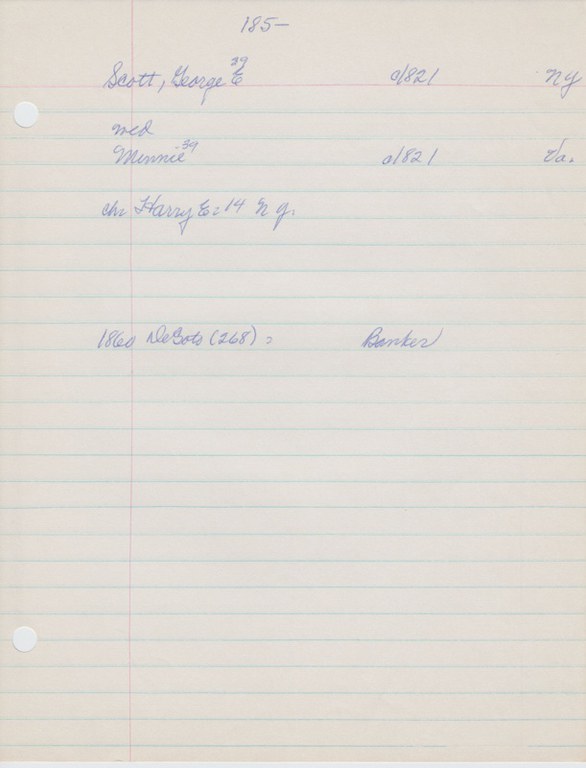 185-
Scott, George E 39 c1821 NY
wed
Minnie 39 c1821 Va.
ch: Harry E: 14 N.Y.
1860 DeSoto (268): Banker